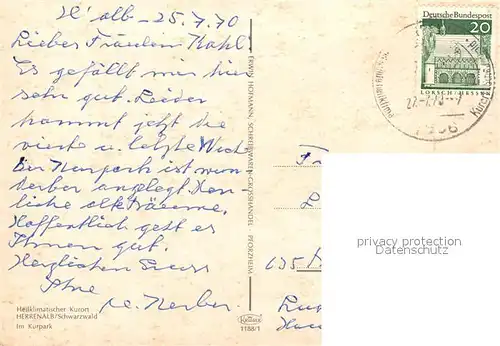 H'alb - 25.7.70
Lieber Fräulein Kahl!
Es gefällt mir hier
sehr gut. Leider
kommt jetzt die
vierte u. letzte Woch
Der Kurpark ist wun
derbar angelegt. Herr-
liche alte Bäume.
Hoffentlich geht es
Ihnen gut.
Herzlichen Gruss
Ihre
Heilklimatischer Kurort
HERRENALB/Schwarzwald
Im Kurpark
ERWIN HOFMANN, SCHREIBWAREN-GROSSHANDEL PFORZHEIM
1188/1
Deutsche Bundespost
20
LORSCH/HESSEN
privacy protection
Datenschutz